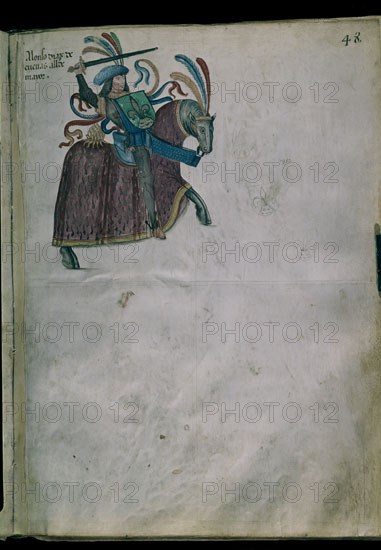 48.
Alonso diaz de
cuevas allde
mayor.
PHOTO12 PHOTO12 PHOTO12
PHOTO12 PHOTO12 PHOTO12
PHOTO12 PHOTO12 PHOTO12
PHOTO12 PHOTO12 PHOTO12
PHOTO12 PHOTO12 PHOTO12
PHOTO12 PHOTO12 PHOTO12